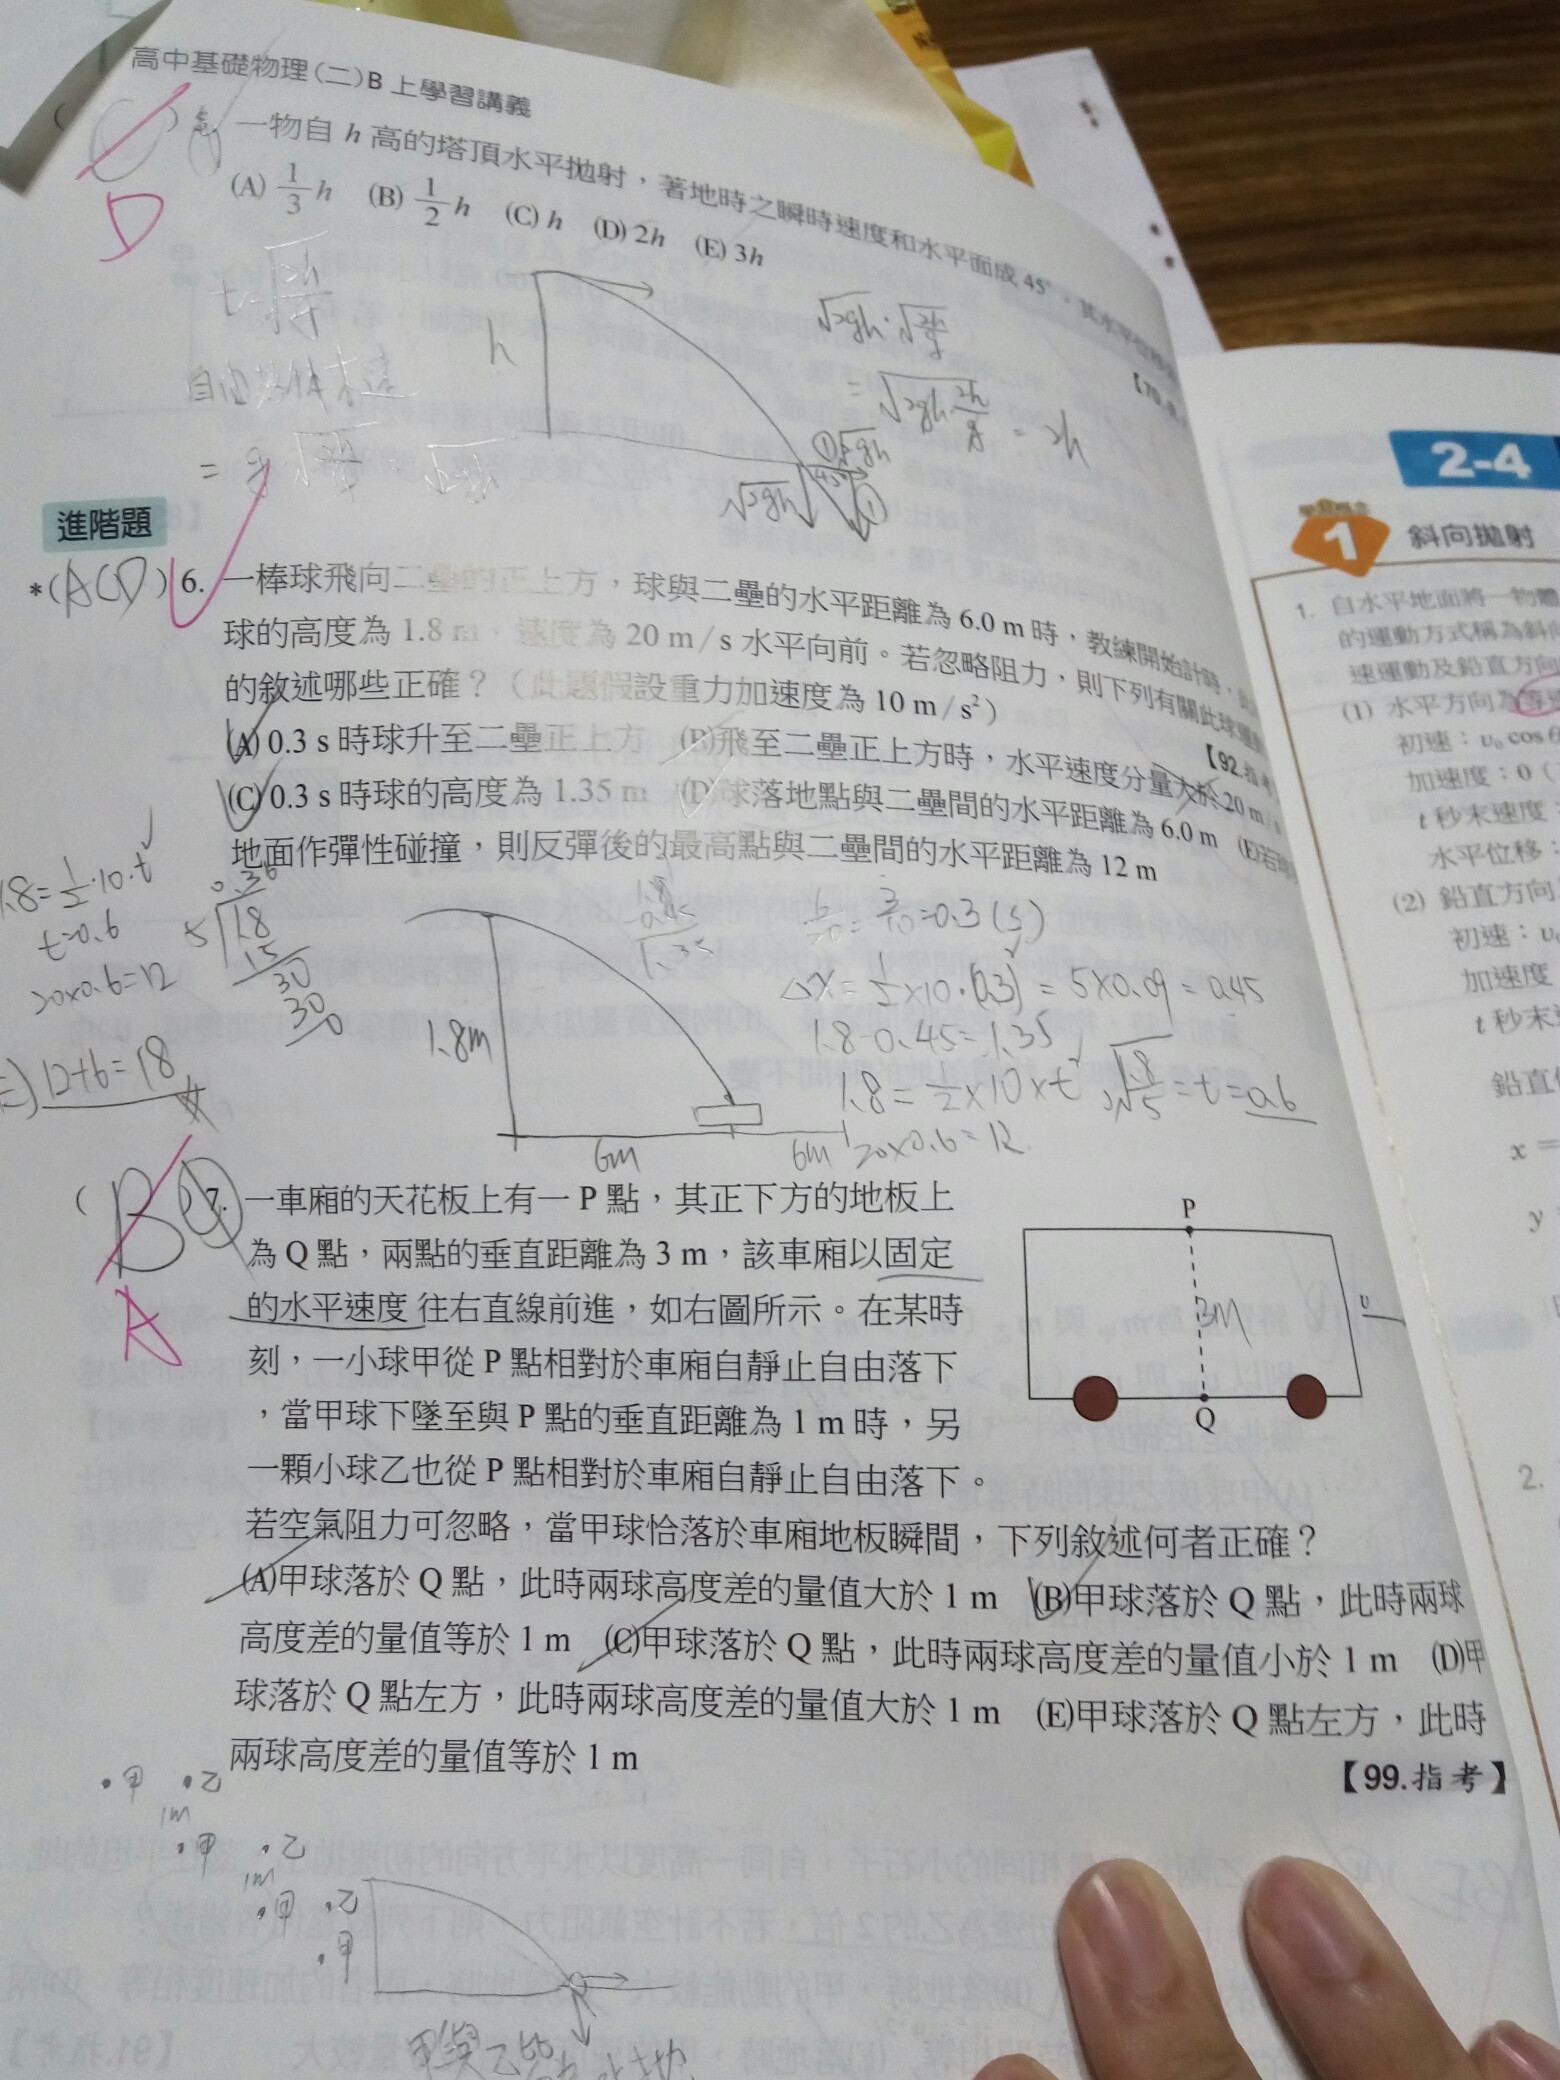 高中基礎物理(二)B 上學習講義
D
一物自 h 高的塔頂水平拋射，著地時之瞬時速度和水平面成 45°，其水平位移
(A) 1/3 h (B) 1/2 h (C) h (D) 2h (E) 3h
【70.
h
√2gh
= 2h
進階題
*(ACD) 6. 一棒球飛向二壘的正上方，球與二壘的水平距離為 6.0 m 時，教練開始計時，
球的高度為 1.8 m，速度為 20 m/s 水平向前。若忽略阻力，則下列有關此球運動
的敘述哪些正確？（此題假設重力加速度為 10 m/s²）
【92.指考
(A) 0.3 s 時球升至二壘正上方 (B)飛至二壘正上方時，水平速度分量大於 20 m/s
(C) 0.3 s 時球的高度為 1.35 m (D)球落地點與二壘間的水平距離為 6.0 m (E)若
地面作彈性碰撞，則反彈後的最高點與二壘間的水平距離為 12 m
1.8=1/2·10·t
t=0.6
20×0.6=12
12+6=18
0.36
5 1.8
15
30
30
0
1.8
0.45
1.35
6/20=3/10=0.3(s)
△X=1/2×10·(0.3)=5×0.09=0.45
1.8-0.45=1.35
1.8=1/2×10×t √1.8/5=t=0.6
20×0.6=12
1.8m
6m
6m
(B) 7. 一車廂的天花板上有一 P 點，其正下方的地板上
為 Q 點，兩點的垂直距離為 3 m，該車廂以固定
的水平速度往右直線前進，如右圖所示。在某時
刻，一小球甲從 P 點相對於車廂自靜止自由落下
，當甲球下墜至與 P 點的垂直距離為 1 m 時，另
一顆小球乙也從 P 點相對於車廂自靜止自由落下。
若空氣阻力可忽略，當甲球恰落於車廂地板瞬間，下列敘述何者正確？
A
P
3M
υ
Q
(A)甲球落於 Q 點，此時兩球高度差的量值大於 1 m (B)甲球落於 Q 點，此時兩球
高度差的量值等於 1 m (C)甲球落於 Q 點，此時兩球高度差的量值小於 1 m (D)甲
球落於 Q 點左方，此時兩球高度差的量值大於 1 m (E)甲球落於 Q 點左方，此時
兩球高度差的量值等於 1 m
【99.指考】
甲 乙
1m
甲 乙
1m
甲 乙
甲
2-4
1 斜向拋射
1. 自水平地面將一物體
的運動方式稱為斜向
速運動及鉛直方向
(1) 水平方向為等速
初速：υ₀ cos θ
加速度：0
t 秒末速度：
水平位移：
(2) 鉛直方向
初速：υ₀
加速度
t 秒末
鉛直
x =
y =
2.